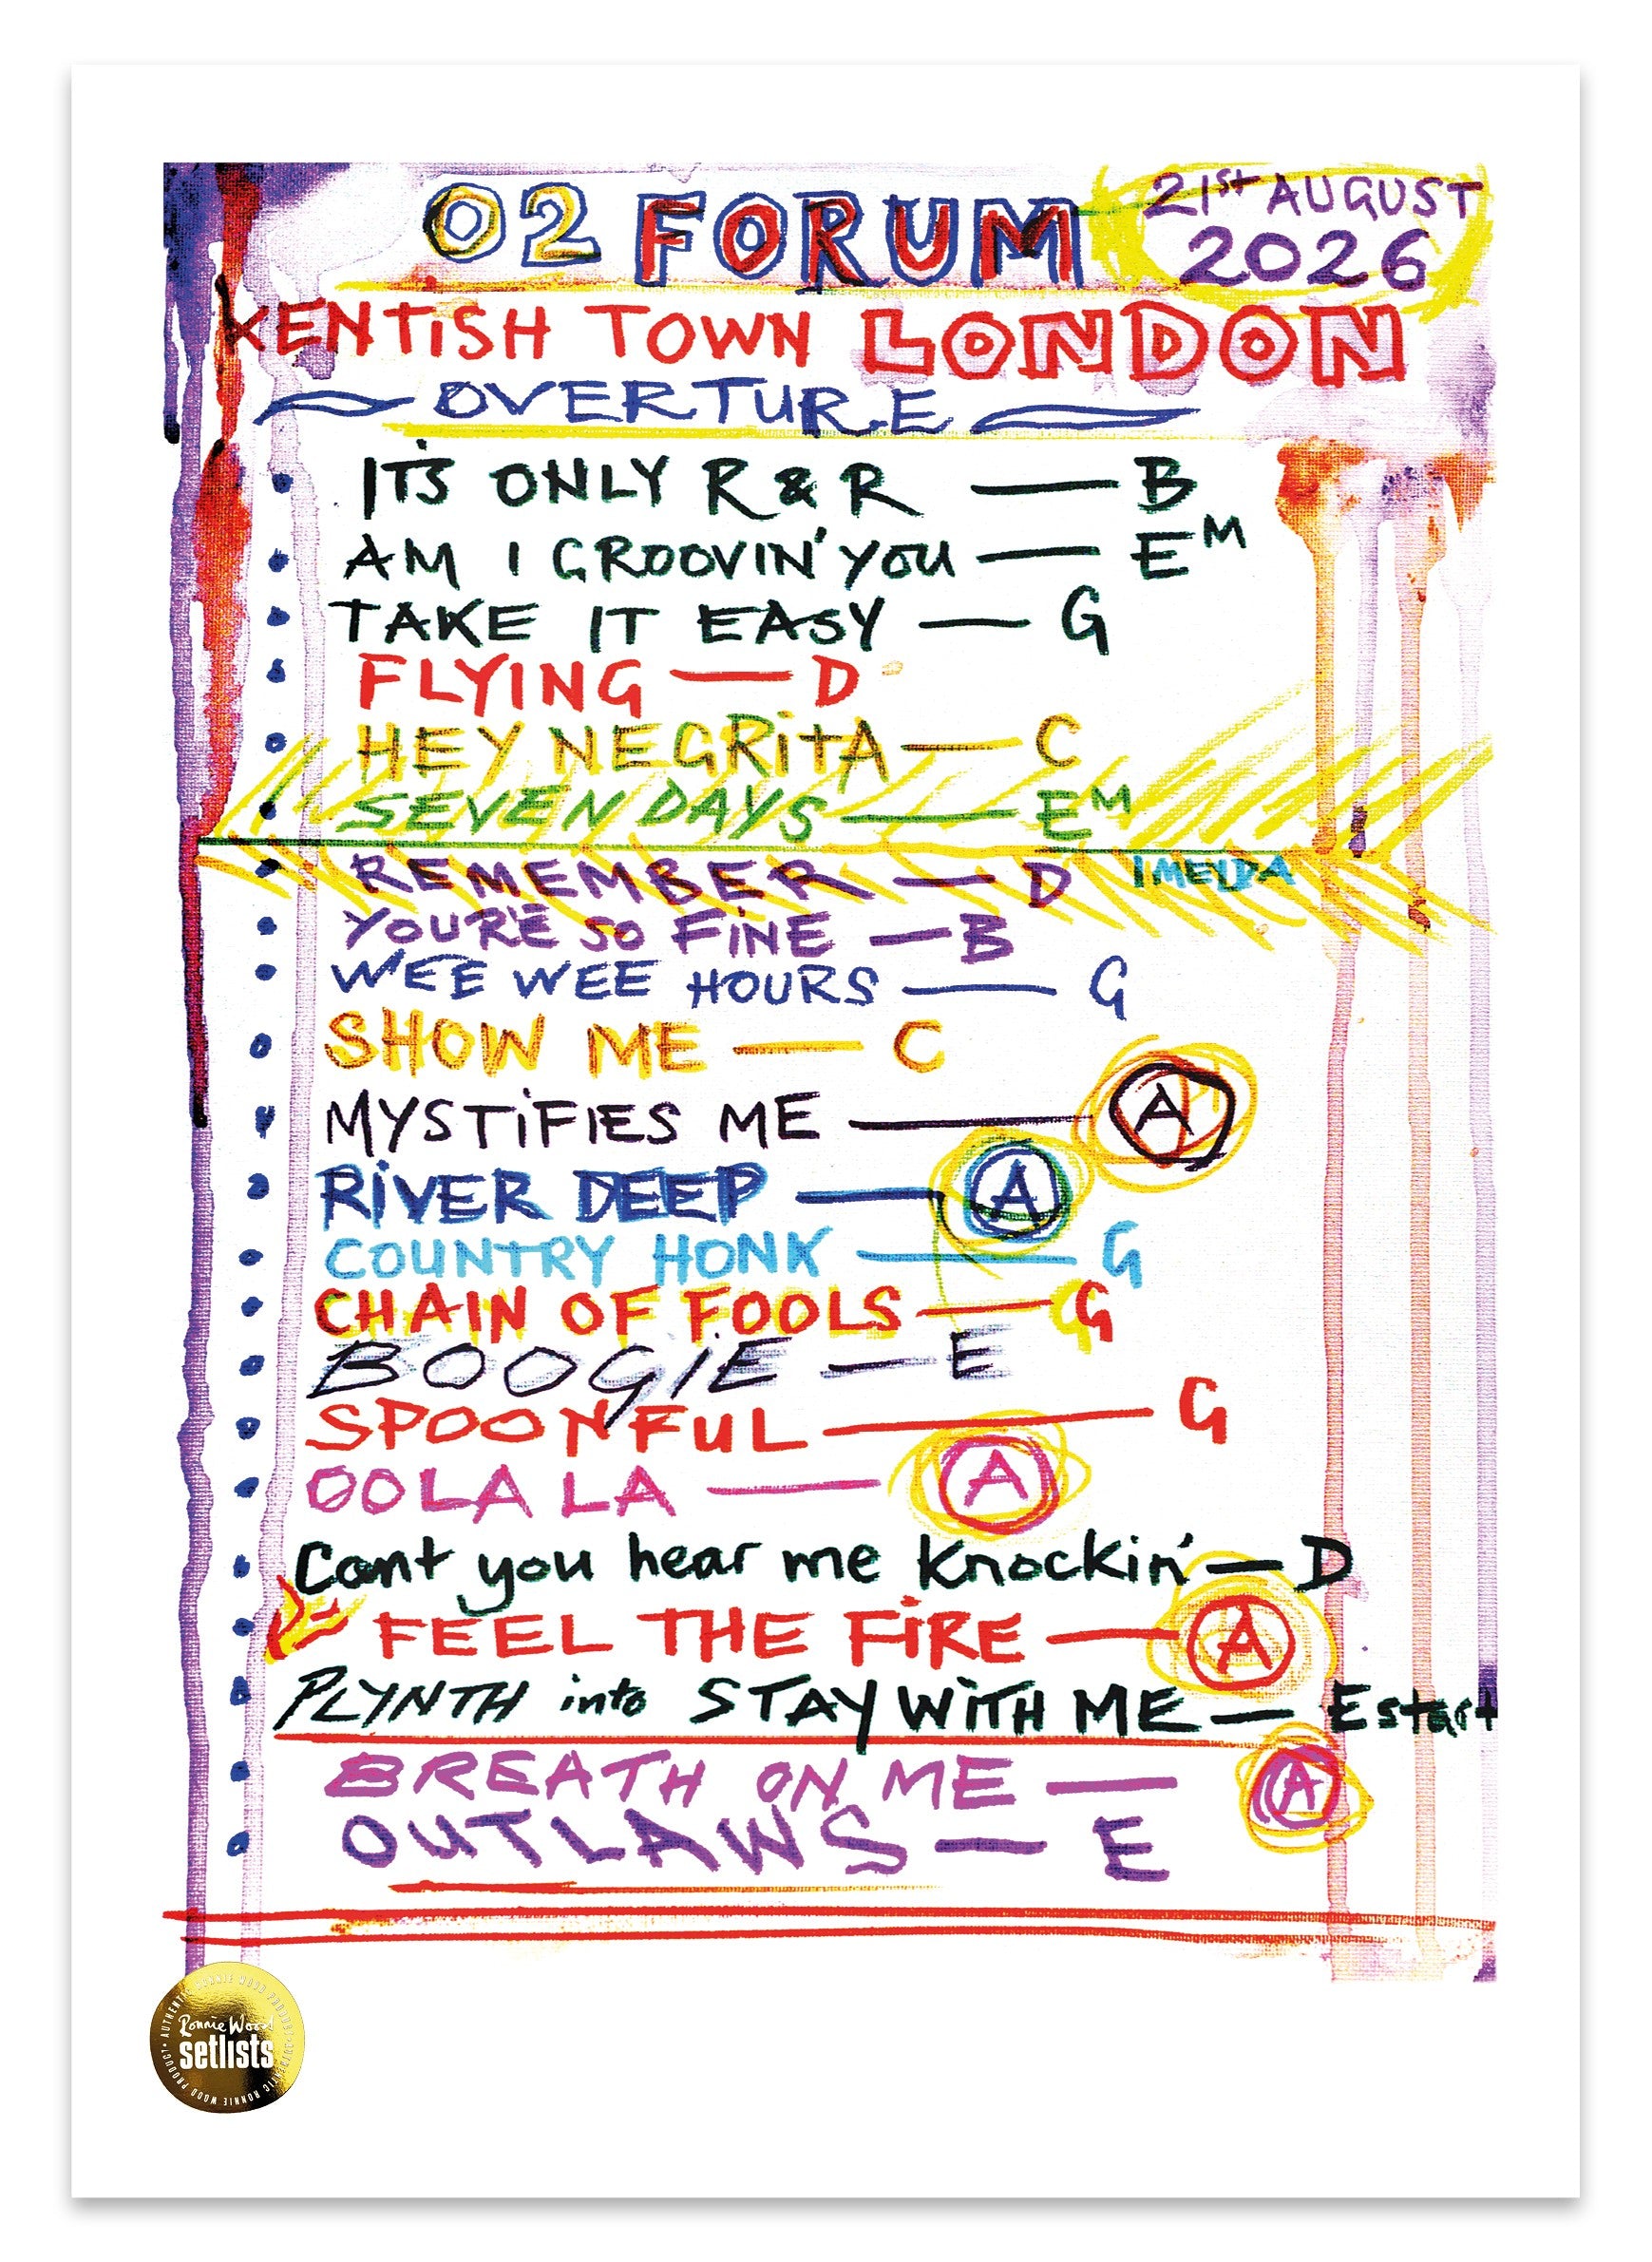 O2 FORUM 21st AUGUST 2026
KENTiSH TOWN LONDON
OVERTURE
ITS ONLY R & R — B
AM I GROOVIN' YOU — EM
TAKE IT EASY — G
FLYING — D
HEY NEGRiTA — C
SEVEN DAYS — EM
REMEMBER — D IMELDA
YOU'RE SO FiNE — B
WEE WEE HOURS — G
SHOW ME — C
MYSTiFIES ME — A
RiVER DEEP — A
COUNTRY HONK — G
CHAIN OF FOOLS — G
BOOGiE — E
SPOONFUL — G
OOLA LA — A
Cant you hear me Knockin' — D
FEEL THE FiRE — A
PLYNTH into STAY WiTH ME — E start
BREATH ON ME — A
OUTLAWS — E
AUTHENTIC RONNIE WOOD PRODUCT • AUTHENTIC RONNIE WOOD PRODUCT •
Ronnie Wood
setlists